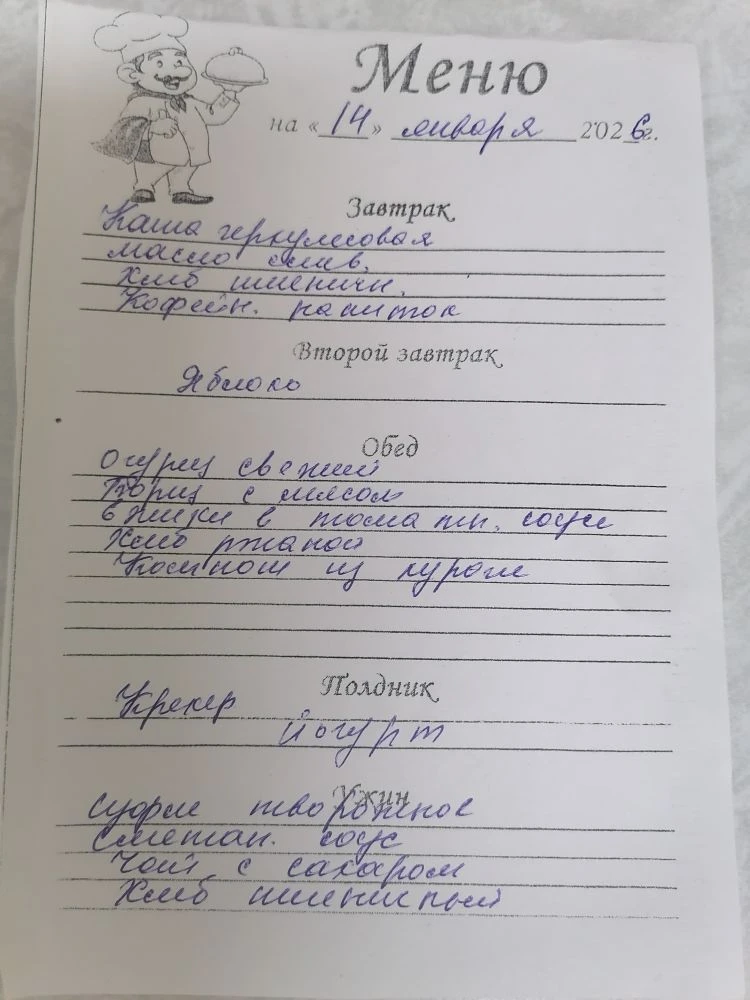 Меню
на «14» января 2026г.
Завтрак
Каша геркулесовая
масло слив.
Хлеб пшеничн.
Кофейн. напиток
Второй завтрак
Яблоко
Обед
Огурец свежий
Борщ с мясом
Ёжики в томатн. соусе
Хлеб ржаной
Компот из кураги
Полдник
Крекер
йогурт
Ужин
Суфле творожное
Сметан. соус
Чай с сахаром
Хлеб пшеничный